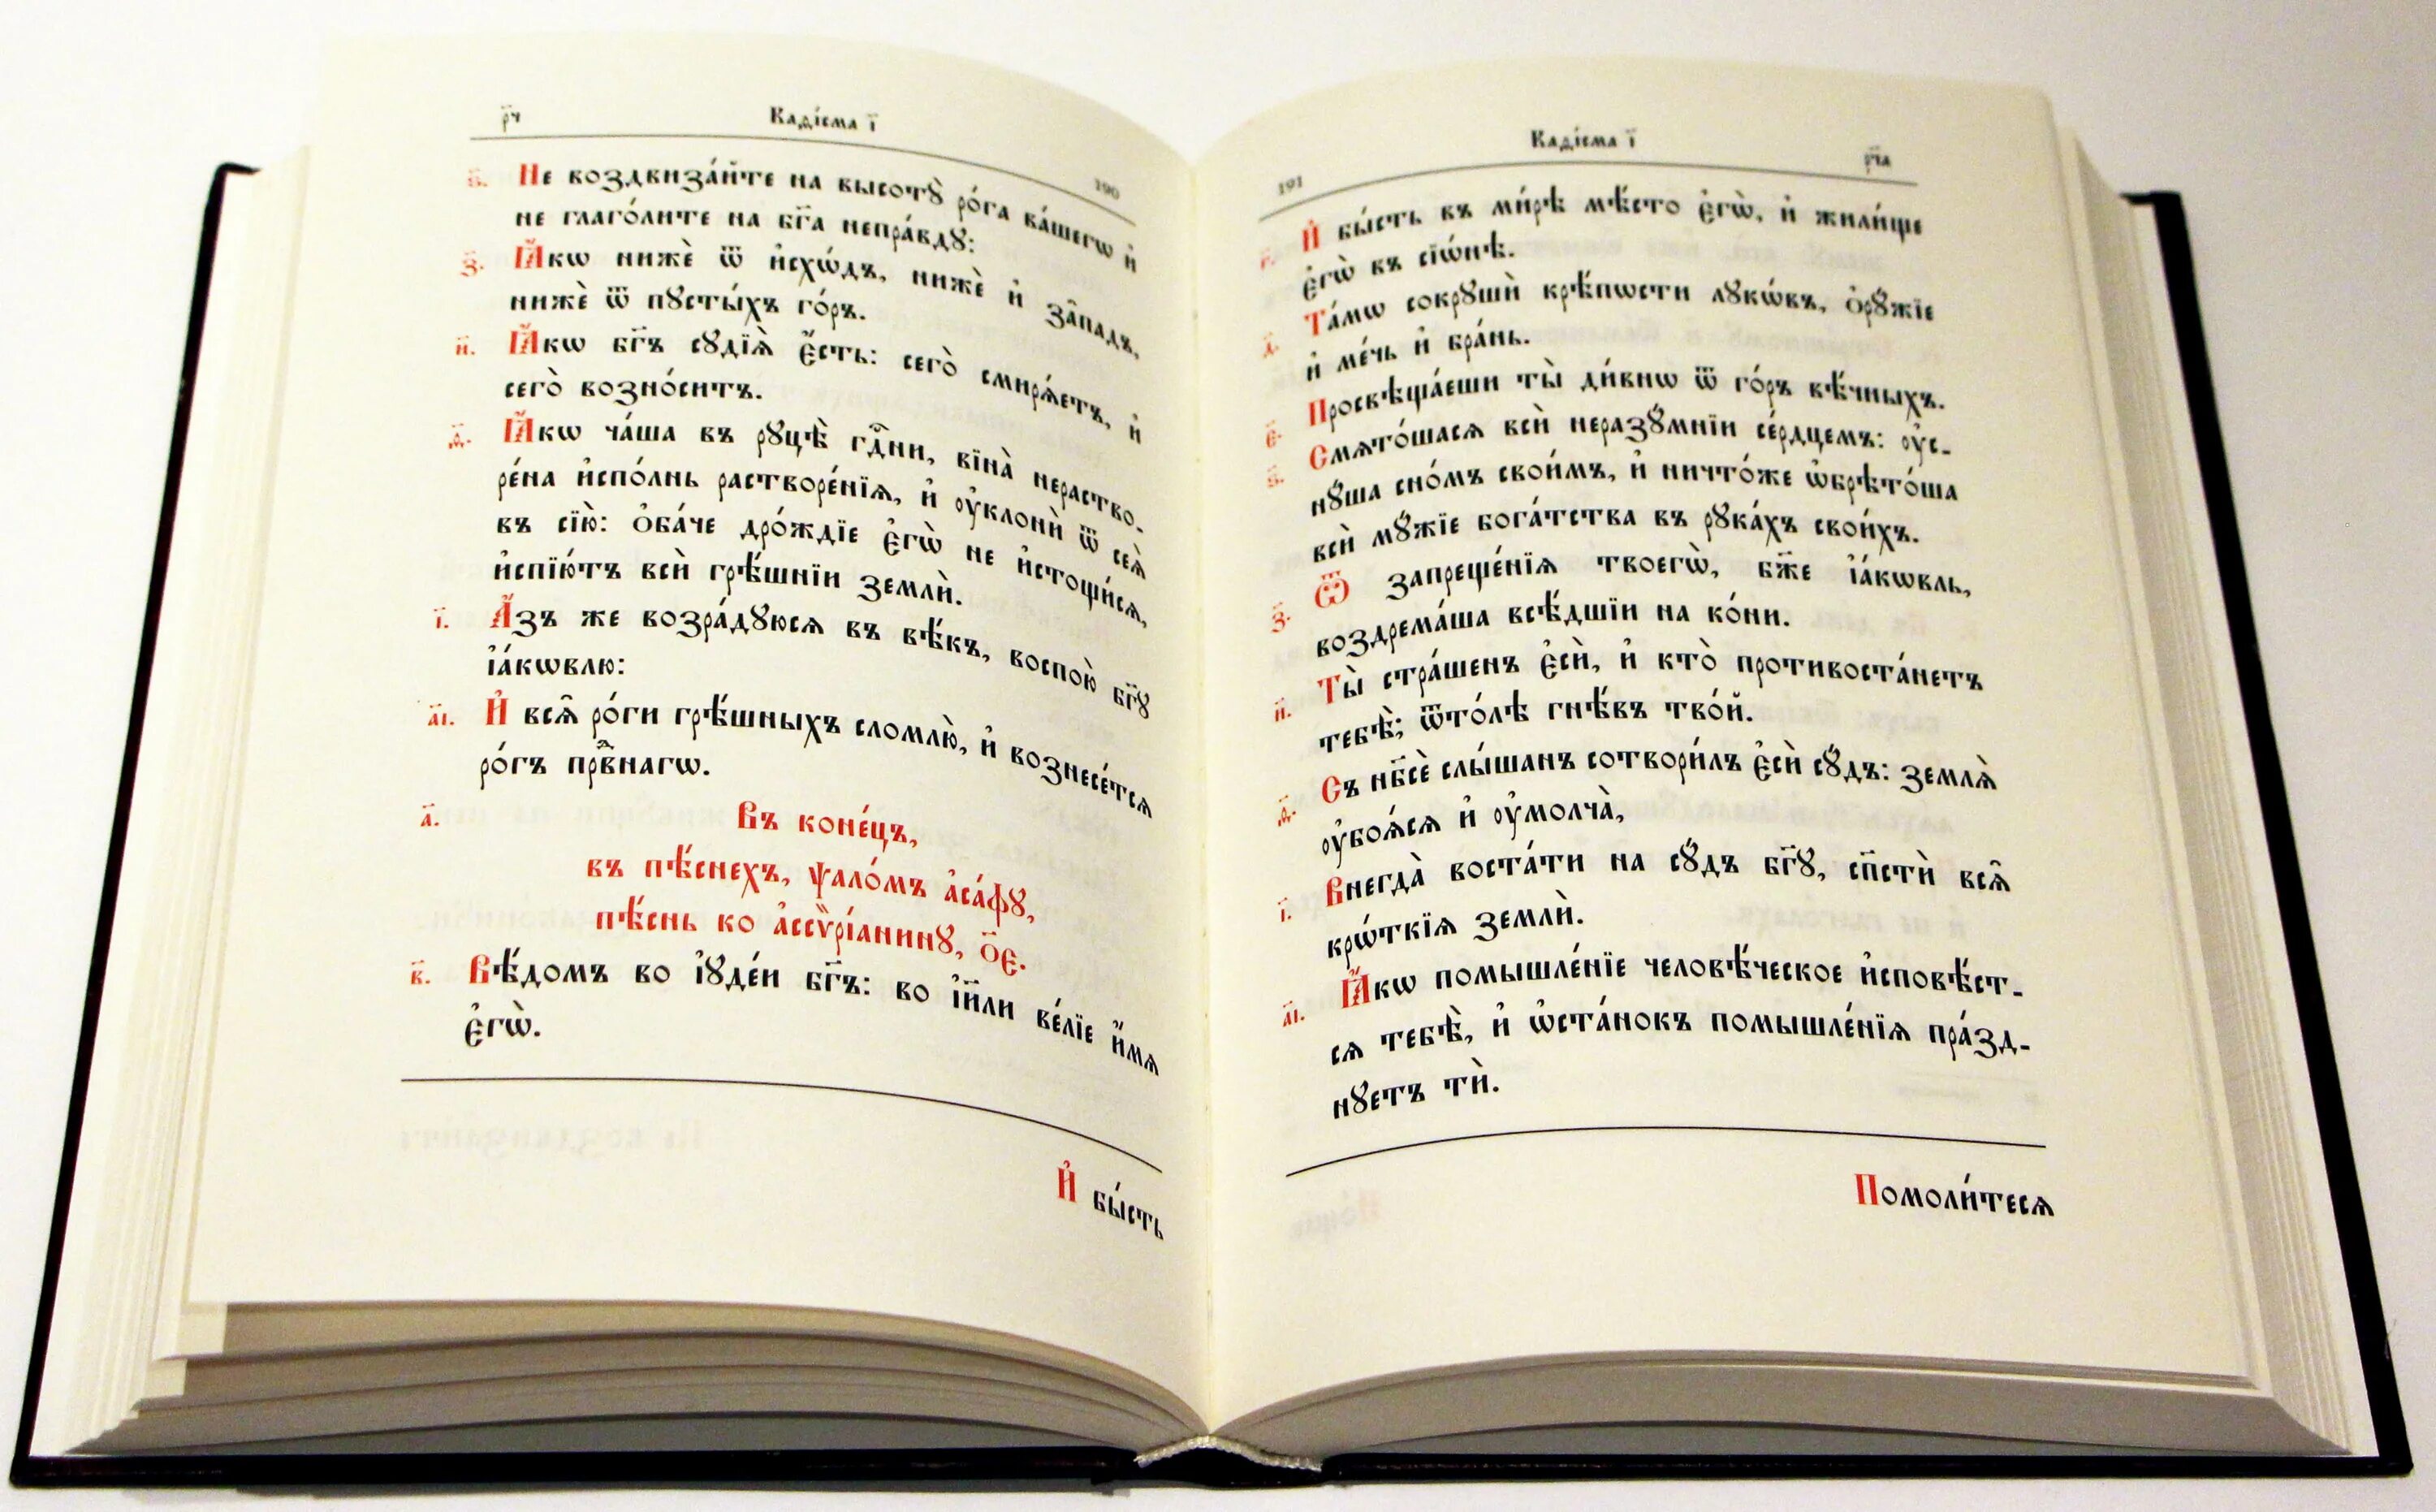 р҃ч Каѳі́сма і҃ 190
ѕ҃. Не воздвиза́йте на высотꙋ̀ ро́га ва́шегѡ и҆
не глаго́лите на бг҃а непра́вдꙋ:
з҃. Ꙗ҆́кѡ нижѐ ѿ и҆схѡ́дъ, нижѐ и҆ за̑падъ,
нижѐ ѿ пꙋсты́хъ го́ръ.
и҃. Ꙗ҆́кѡ бг҃ъ сꙋдїѧ̀ є҆́сть: сего̀ смирѧ́етъ, и҆
сего̀ возно́ситъ.
ѳ҃. Ꙗ҆́кѡ ча́ша въ рꙋцѣ̀ гдⷭ҇ни, вїна̀ нераство-
ре́на и҆спо́лнь растворе́нїѧ, и҆ ᲂу҆клонѝ ѿ сеѧ̀
въ сїю̀: ѻ҆ба́че дро́ждїе є҆гѡ̀ не и҆стощи́сѧ,
и҆спїю́тъ всѝ грѣ́шнїи землѝ.
і҃. А҆́зъ же возра́дꙋюсѧ въ вѣ́къ, воспою̀ бг҃ꙋ
і҆а́кѡвлю:
а҃і. И҆ всѧ̑ ро́ги грѣ́шныхъ сломлю̀, и҆ вознесе́тсѧ
ро́гъ првⷣнагѡ.
а҃. Въ коне́цъ,
въ пѣ́снехъ, ѱало́мъ а҆са́фꙋ,
пѣ́снь ко а҆ссѷрі́анинꙋ, ѻ҃є.
в҃. Вѣ́домъ во і҆ꙋде́и бг҃ъ: во і҆и҃ли ве́лїе и҆́мѧ
є҆гѡ̀.
И҆ бы́сть
191 Каѳі́сма і҃ рч҃а
г҃. И҆ бы́сть въ ми́рѣ мѣ́сто є҆гѡ̀, и҆ жили́ще
є҆гѡ̀ въ сїѡ́нѣ.
д҃. Та́мѡ сокрꙋшѝ крѣ́пѡсти лꙋкѡ́въ, ѻ҆рꙋ́жїе
и҆ ме́чь и҆ бра́нь.
є҃. Просвѣща́еши ты̀ ди́внѡ ѿ го́ръ вѣ́чныхъ.
ѕ҃. Смѧто́шасѧ всѝ неразꙋ́мнїи се́рдцемъ: ᲂу҆с-
нꙋ́ша сно́мъ свои́мъ, и҆ ничто́же ѡ҆брѣто́ша
всѝ мꙋ́жїе бога́тства въ рꙋка́хъ свои́хъ.
з҃. Ѿ запреще́нїѧ твоегѡ̀, бж҃е і҆а́кѡвль,
воздрема́ша всѣ́дшїи на ко́ни.
и҃. Ты̀ стра́шенъ є҆сѝ, и҆ кто̀ противоста́нетъ
тебѣ̀; ѿто́лѣ гнѣ́въ тво́й.
ѳ҃. Съ нб҃сѐ слы́шанъ сотвори́лъ є҆сѝ сꙋ́дъ: землѧ̀
ᲂу҆боѧ́сѧ и҆ ᲂу҆молча̀,
і҃. Внегда̀ воста́ти на сꙋ́дъ бг҃ꙋ, сп҃стѝ всѧ̑
крѡ́ткїѧ землѝ.
а҃і. Ꙗ҆́кѡ помышле́нїе человѣ́ческое и҆сповѣ́ст-
сѧ тебѣ̀, и҆ ѡ҆ста́нокъ помышле́нїѧ пра́зд-
нꙋетъ тѝ.
Помоли́тесѧ